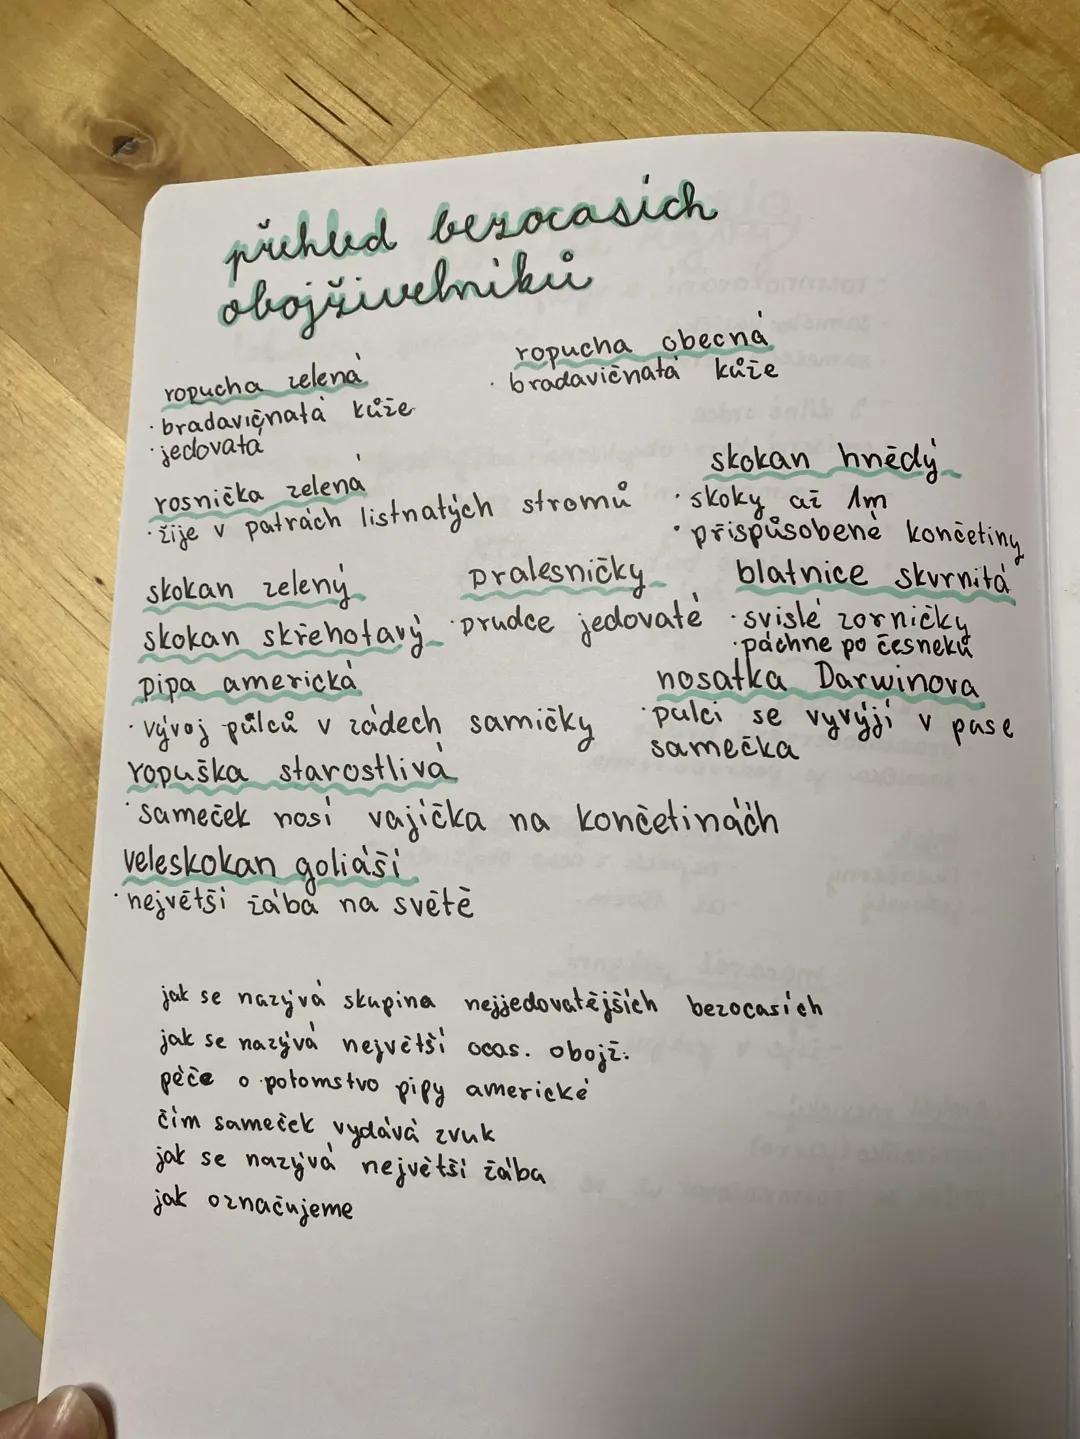 přehled bezocasích
obojživelníků
ropucha zelená
· bradavičnatá kůže
· jedovatá
ropucha obecná
· bradavičnatá kůže
rosnička zelená
· žije v patrách listnatých stromů
skokan hnědý
· skoky až 1m
· přispůsobené končetiny
skokan zelený
skokan skřehotavý
pralesničky
· prudce jedovaté
blatnice skvrnitá
· svislé zorničky
· páchne po česneku
pipa americká
· vývoj půlců v zádech samičky
nosatka Darwinova
· pulci se vyvýjí v pase
samečka
ropuška starostlivá
· sameček nosí vajíčka na končetináčh
veleskokan goliáší
· největší žába na světě
jak se nazývá skupina nejjedovatějších bezocasích
jak se nazývá největší ocas. obojž.
péče o potomstvo pipy americké
čím sameček vydává zvuk
jak se nazývá největší žába
jak označujeme